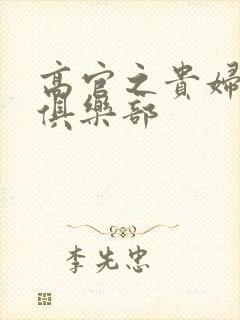 高官之貴婦
俱樂部
李先忠